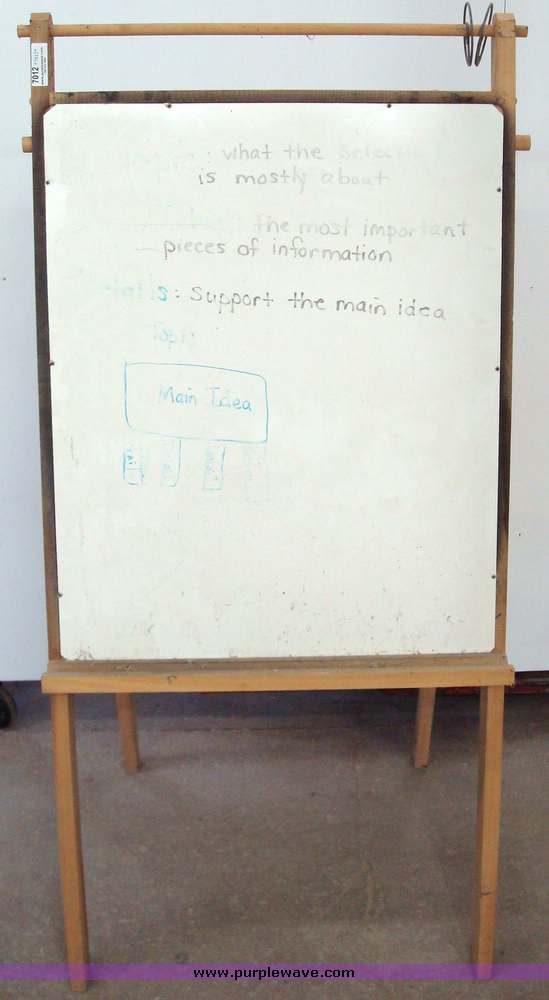 7012
: what the Selec
is mostly about
the most important
pieces of information
tails: Support the main idea
Topic
Main Idea
www.purplewave.com